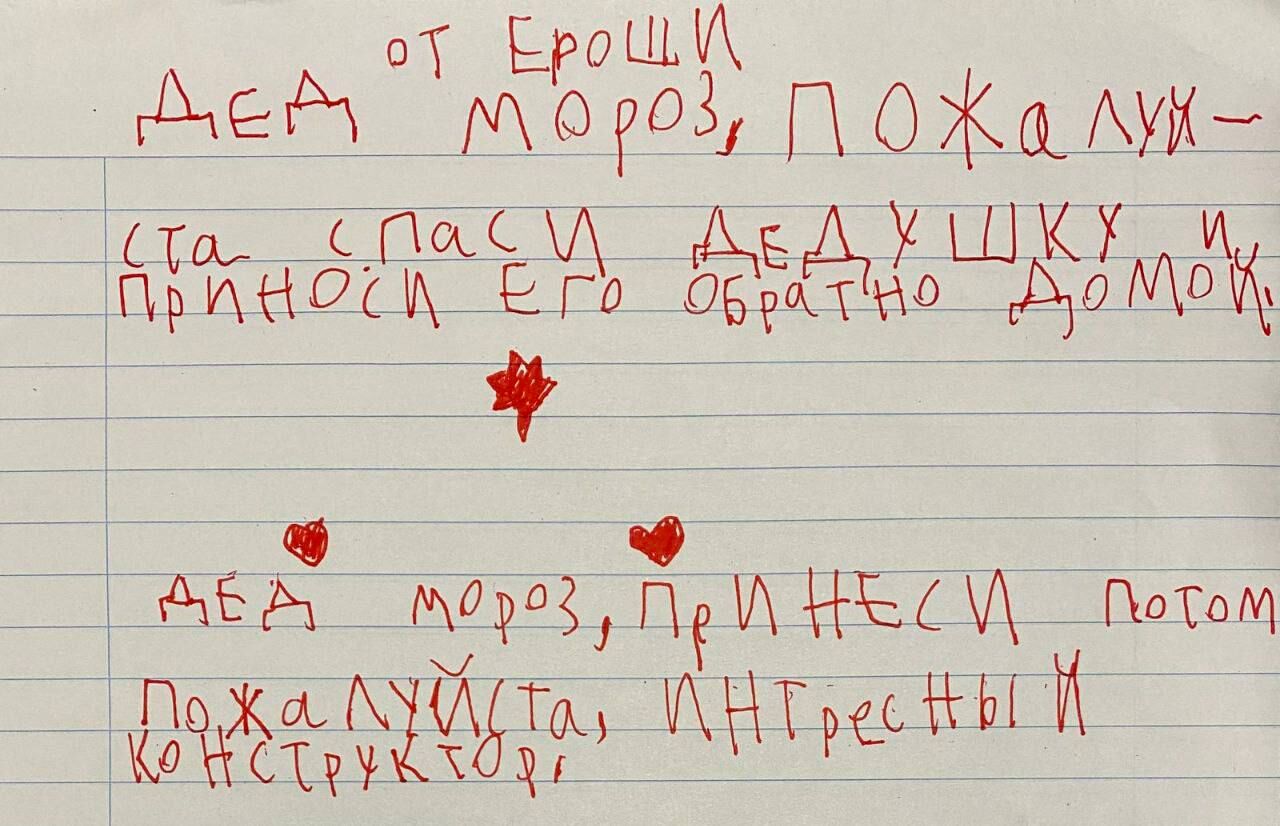 от Ероши
ДЕД МОРОЗ, ПОЖаЛУЙ-
ста спаси ДЕДУШКУ и
приноси Его обратно домой.
ДЕД мороз, принеси потом
пожалуйста, интресный
конструктор,